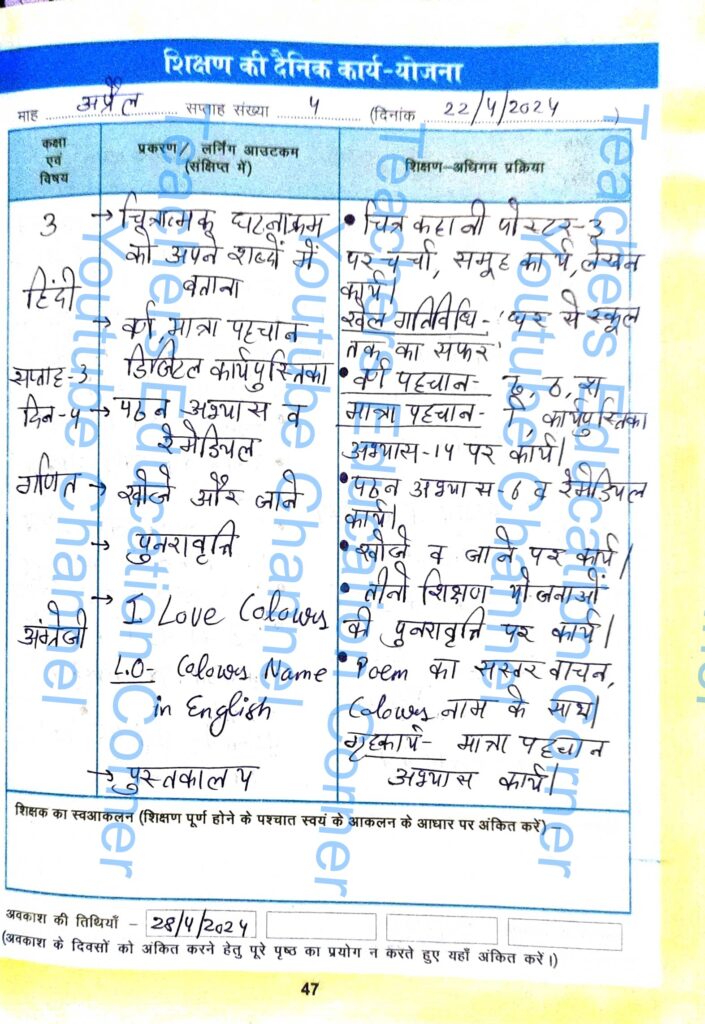 शिक्षण की दैनिक कार्य-योजना
माह अप्रैल सप्ताह संख्या 4 (दिनांक 22/4/2024)
कक्षा
एवं
विषय
प्रकरण/ लर्निंग आउटकम
(संक्षिप्त में)
शिक्षण-अधिगम प्रक्रिया
3
हिंदी
सप्ताह-3
दिन-4
गणित
अंग्रेजी
→ चित्रात्मक घटनाक्रम
को अपने शब्दों में
बताना
→ वर्ण, मात्रा पहचान
डिजिटल कार्यपुस्तिका
→ पठन अभ्यास व
रेमेडियल
→ खोजे और जाने
→ पुनरावृत्ति
→ I Love Colours
L.O- Colours Name
in English
→ पुस्तकालय
• चित्र कहानी पोस्टर-3
पर चर्चा, समूह कार्य, लेखन
कार्य।
खेल गतिविधि- 'घर से स्कूल
तक का सफर'
• वर्ण पहचान- ढ़, ठ, श
मात्रा पहचान- ो, कार्यपुस्तिका
अभ्यास-14 पर कार्य।
• पठन अभ्यास-6 व रेमेडियल
कार्य।
• खोजे व जाने पर कार्य।
• तीनो शिक्षण योजनाओं
की पुनरावृत्ति पर कार्य।
• Poem का सस्वर वाचन,
Colours नाम के साथ।
गृहकार्य- मात्रा पहचान
अभ्यास कार्य।
शिक्षक का स्वआकलन (शिक्षण पूर्ण होने के पश्चात स्वयं के आकलन के आधार पर अंकित करें) –
अवकाश की तिथियाँ – 28/4/2024
(अवकाश के दिवसों को अंकित करने हेतु पूरे पृष्ठ का प्रयोग न करते हुए यहाँ अंकित करें।)
47
Teachers Education Corner
Youtube Channel
Teachers Education Corner
Youtube Channel
Teachers Education Corner